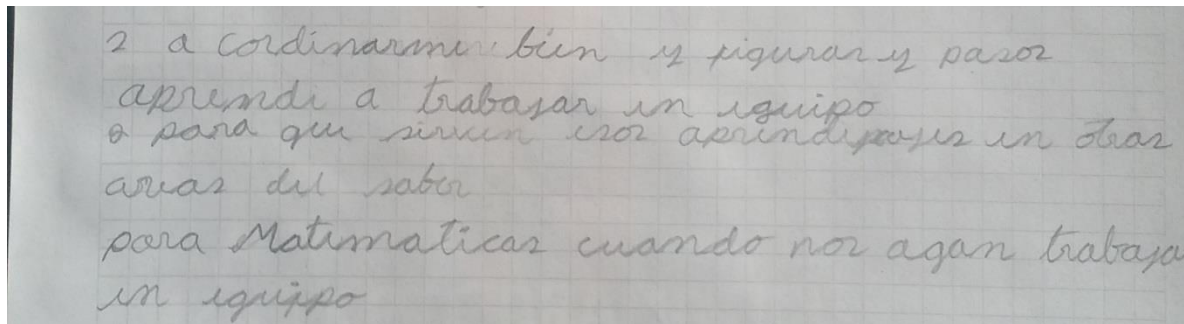 2 a cordinarme bien y figuras y pasos
aprendi a trabajar en equipo
o para que sirven esos aprendizajes en otras
areas del saber
para Matematicas cuando nos agan trabaja
en equippo